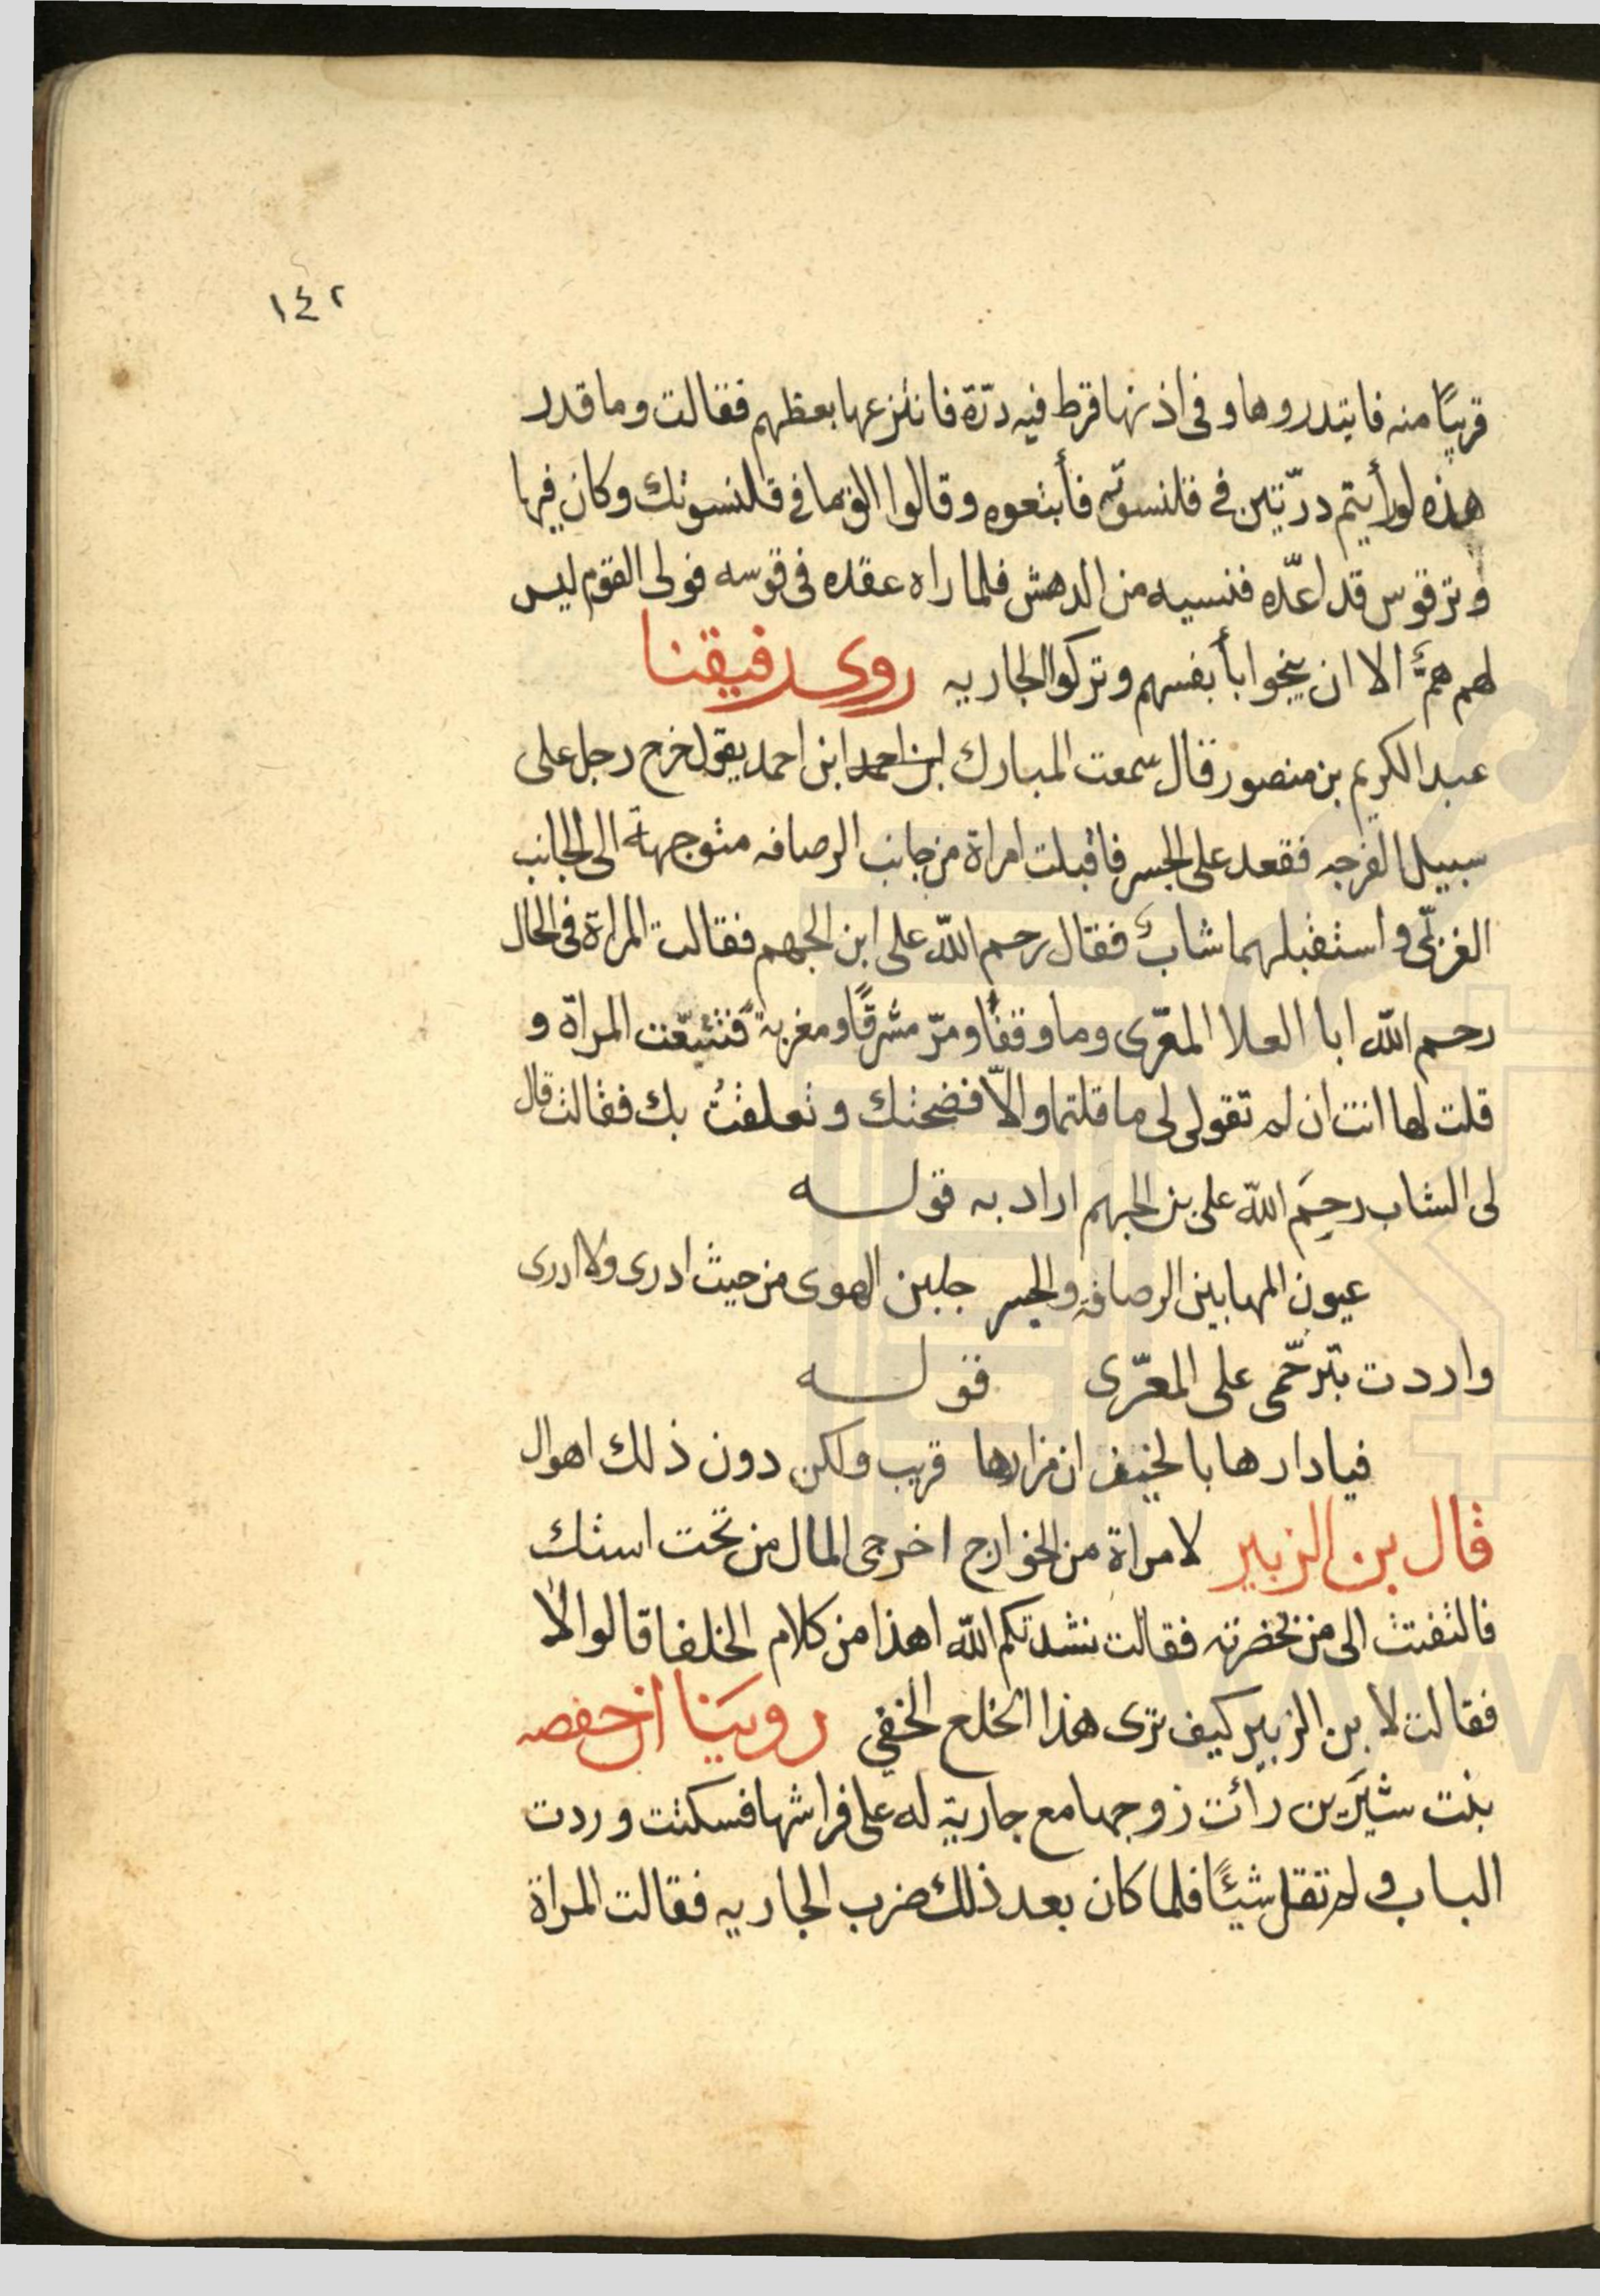 ١٤٢
قريبًا منه فابتدروها وفى اذنها قرط فيه درّة فانتزعها بعظهم فقالت وما قدر
هذه لورأيتم درّتين فى قلنسوته فأبتعوه وقالوا الق ما فى قلنسوتك وكان فيها
وترقوس قد اعدّه فنسيه من الدهش فلما راه عقده فى قوسه فولى القوم ليس
لهم همٌّ الا ان ينجوا بأبفسهم وتركوا الجاريه روى رفيقنا
عبد الكريم بن منصور قال سمعت المبارك ابن احمد ابن احمد يقول خرج رجل على
سبيل الفرجه فقعد على الجسر فاقبلت امراة من جانب الرصافه متوجهة الى الجانب
الغربّى واستقبلهما شابٌ فقال رحم الله على ابن الجهم فقالت المراة فى الحال
رحم الله ابا العلا المعّرى وما وقفا ومرّ مشرقًا ومغربةً فتتبّعت المراة و
قلت لها انت ان لم تقولى لى ما قلتما والّا فضحتك وتعلقتُ بك فقالت قال
لى الشاب رحِمَ الله على بن الجهم اراد به قوله
عيون المها بين الرصافة والجسر جلبن الهوى من حيث ادرى ولا ادرى
واردت بترحّمى على المعرّى قوله
فيا دارها بالخيف ان مزارها قريب ولكن دون ذلك اهوال
قال بن الزبير لامراة من الخوارج اخرجى المال من تحت استك
فالتفتت الى من بحضرته فقالت نشدتكم الله اهذا من كلام الخلفا قالوا لا
فقالت لابن الزبير كيف ترى هذا الخلع الخفي رويَنا ان حفصه
بنت سَيَرين رأت زوجها مع جارية له على فراشها فسكتت وردت
الباب ولم تقل شيئًا فلما كان بعد ذلك ضرب الجاريه فقالت المراة